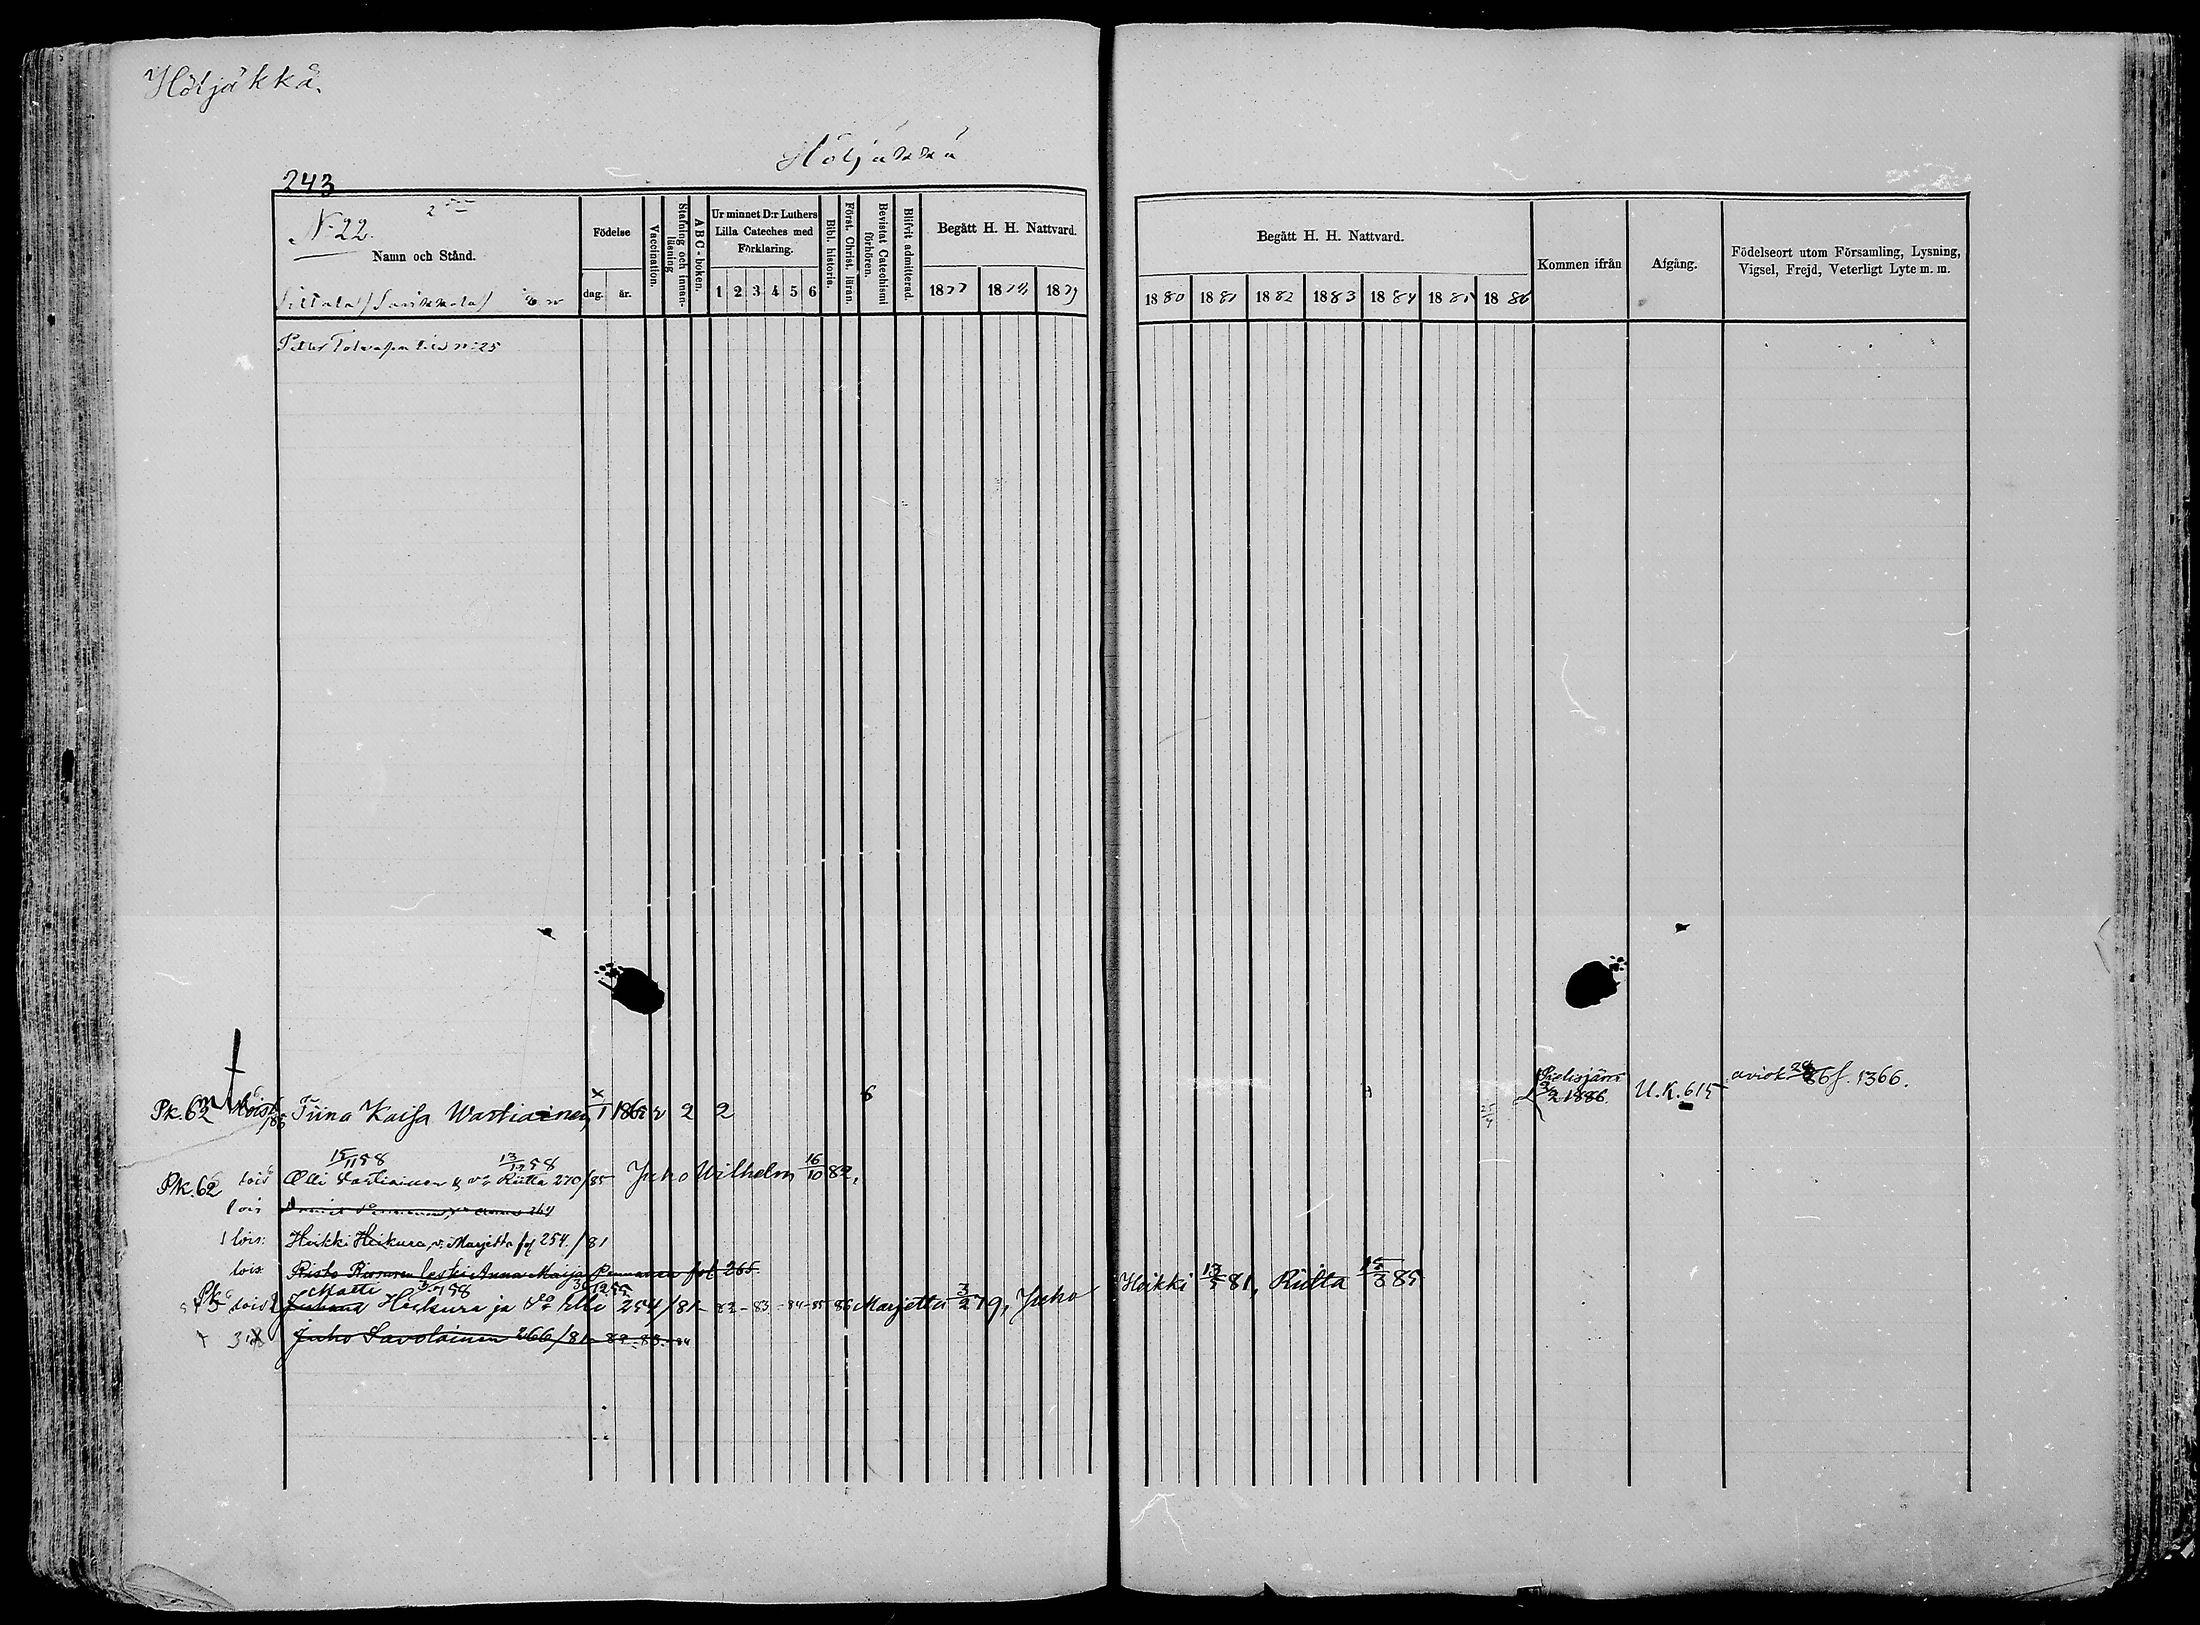 Höljäkkä.
Höljäkkä
243
N:22.
Namn och Stånd.
Födelse
dag.
år.
Vaccination.
Stafning och innan-läsning
ABC-boken.
Ur minnet D:r Luthers Lilla Cateches med Förklaring.
1 2 3 4 5 6
Bibl. historia.
Först. Christ. läran.
Bevistat Catechismi förhören.
Blifvit admitterad.
Begått H. H. Nattvard.
1877 1878 1879
Begått H. H. Nattvard.
1880 1881 1882 1883 1884 1885 1886
Kommen ifrån
Afgång.
Födelseort utom Församling, Lysning, Vigsel, Frejd, Veterligt Lyte m. m.
N:25
Pk. 62 Tiina Kaisa Wartiainen 2 2 2 1886. U.K. 615 aviok. f. 1366.
15/11 58 13/12 58
Pk. 62 lois Olli Vartiainen Riitta 270/85 Juho Wilhelm 16/10 82,
lois
lois: Heikki Heikura, v: Marjetta fol 254./81
lois Risto leski Anna Maija Pennanen fol 265.
Matti
Pk. lois Juhana Heikura ja Elli 254/81- 82- 83- 84- 85 86 Marjetta 3/2 79, Juho Heikki 81, Riitta 15/3 85
Juho Savolainen 266/81- 82-83-84